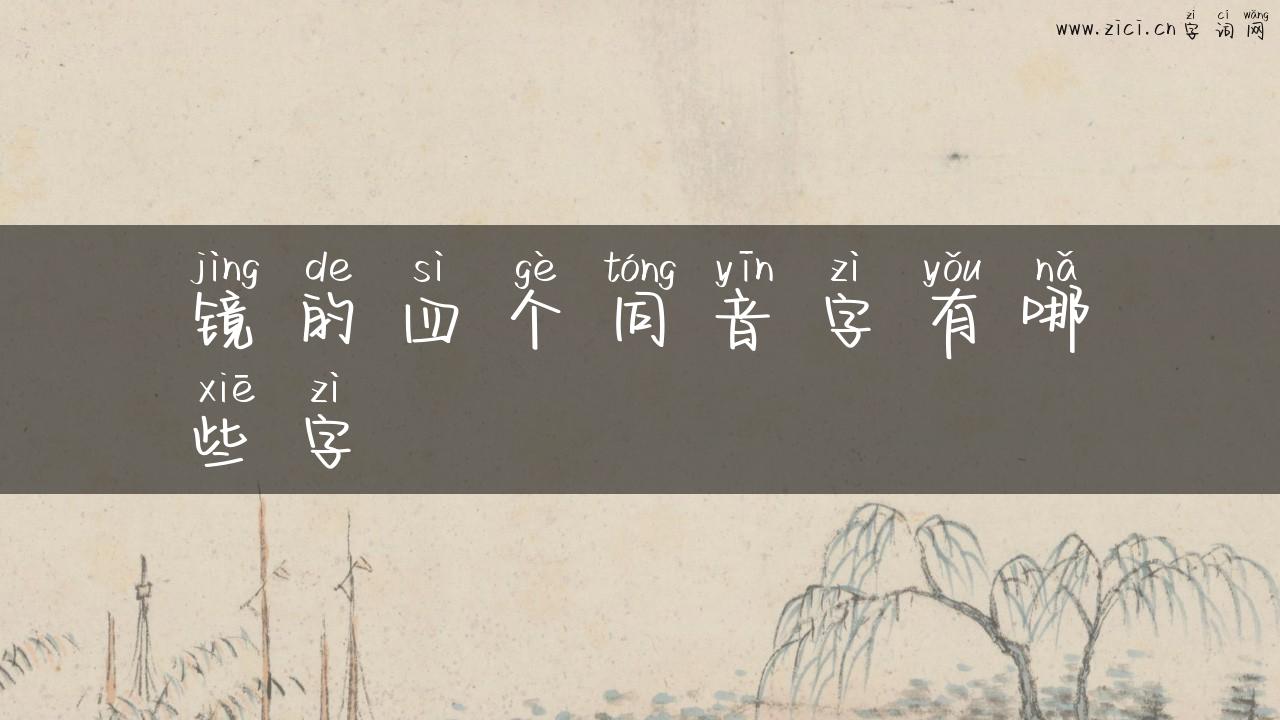 zì cí wǎng
www.zici.cn 字 词 网
jìng de sì gè tóng yīn zì yǒu nǎ
镜 的 四 个 同 音 字 有 哪
xiē zì
些 字